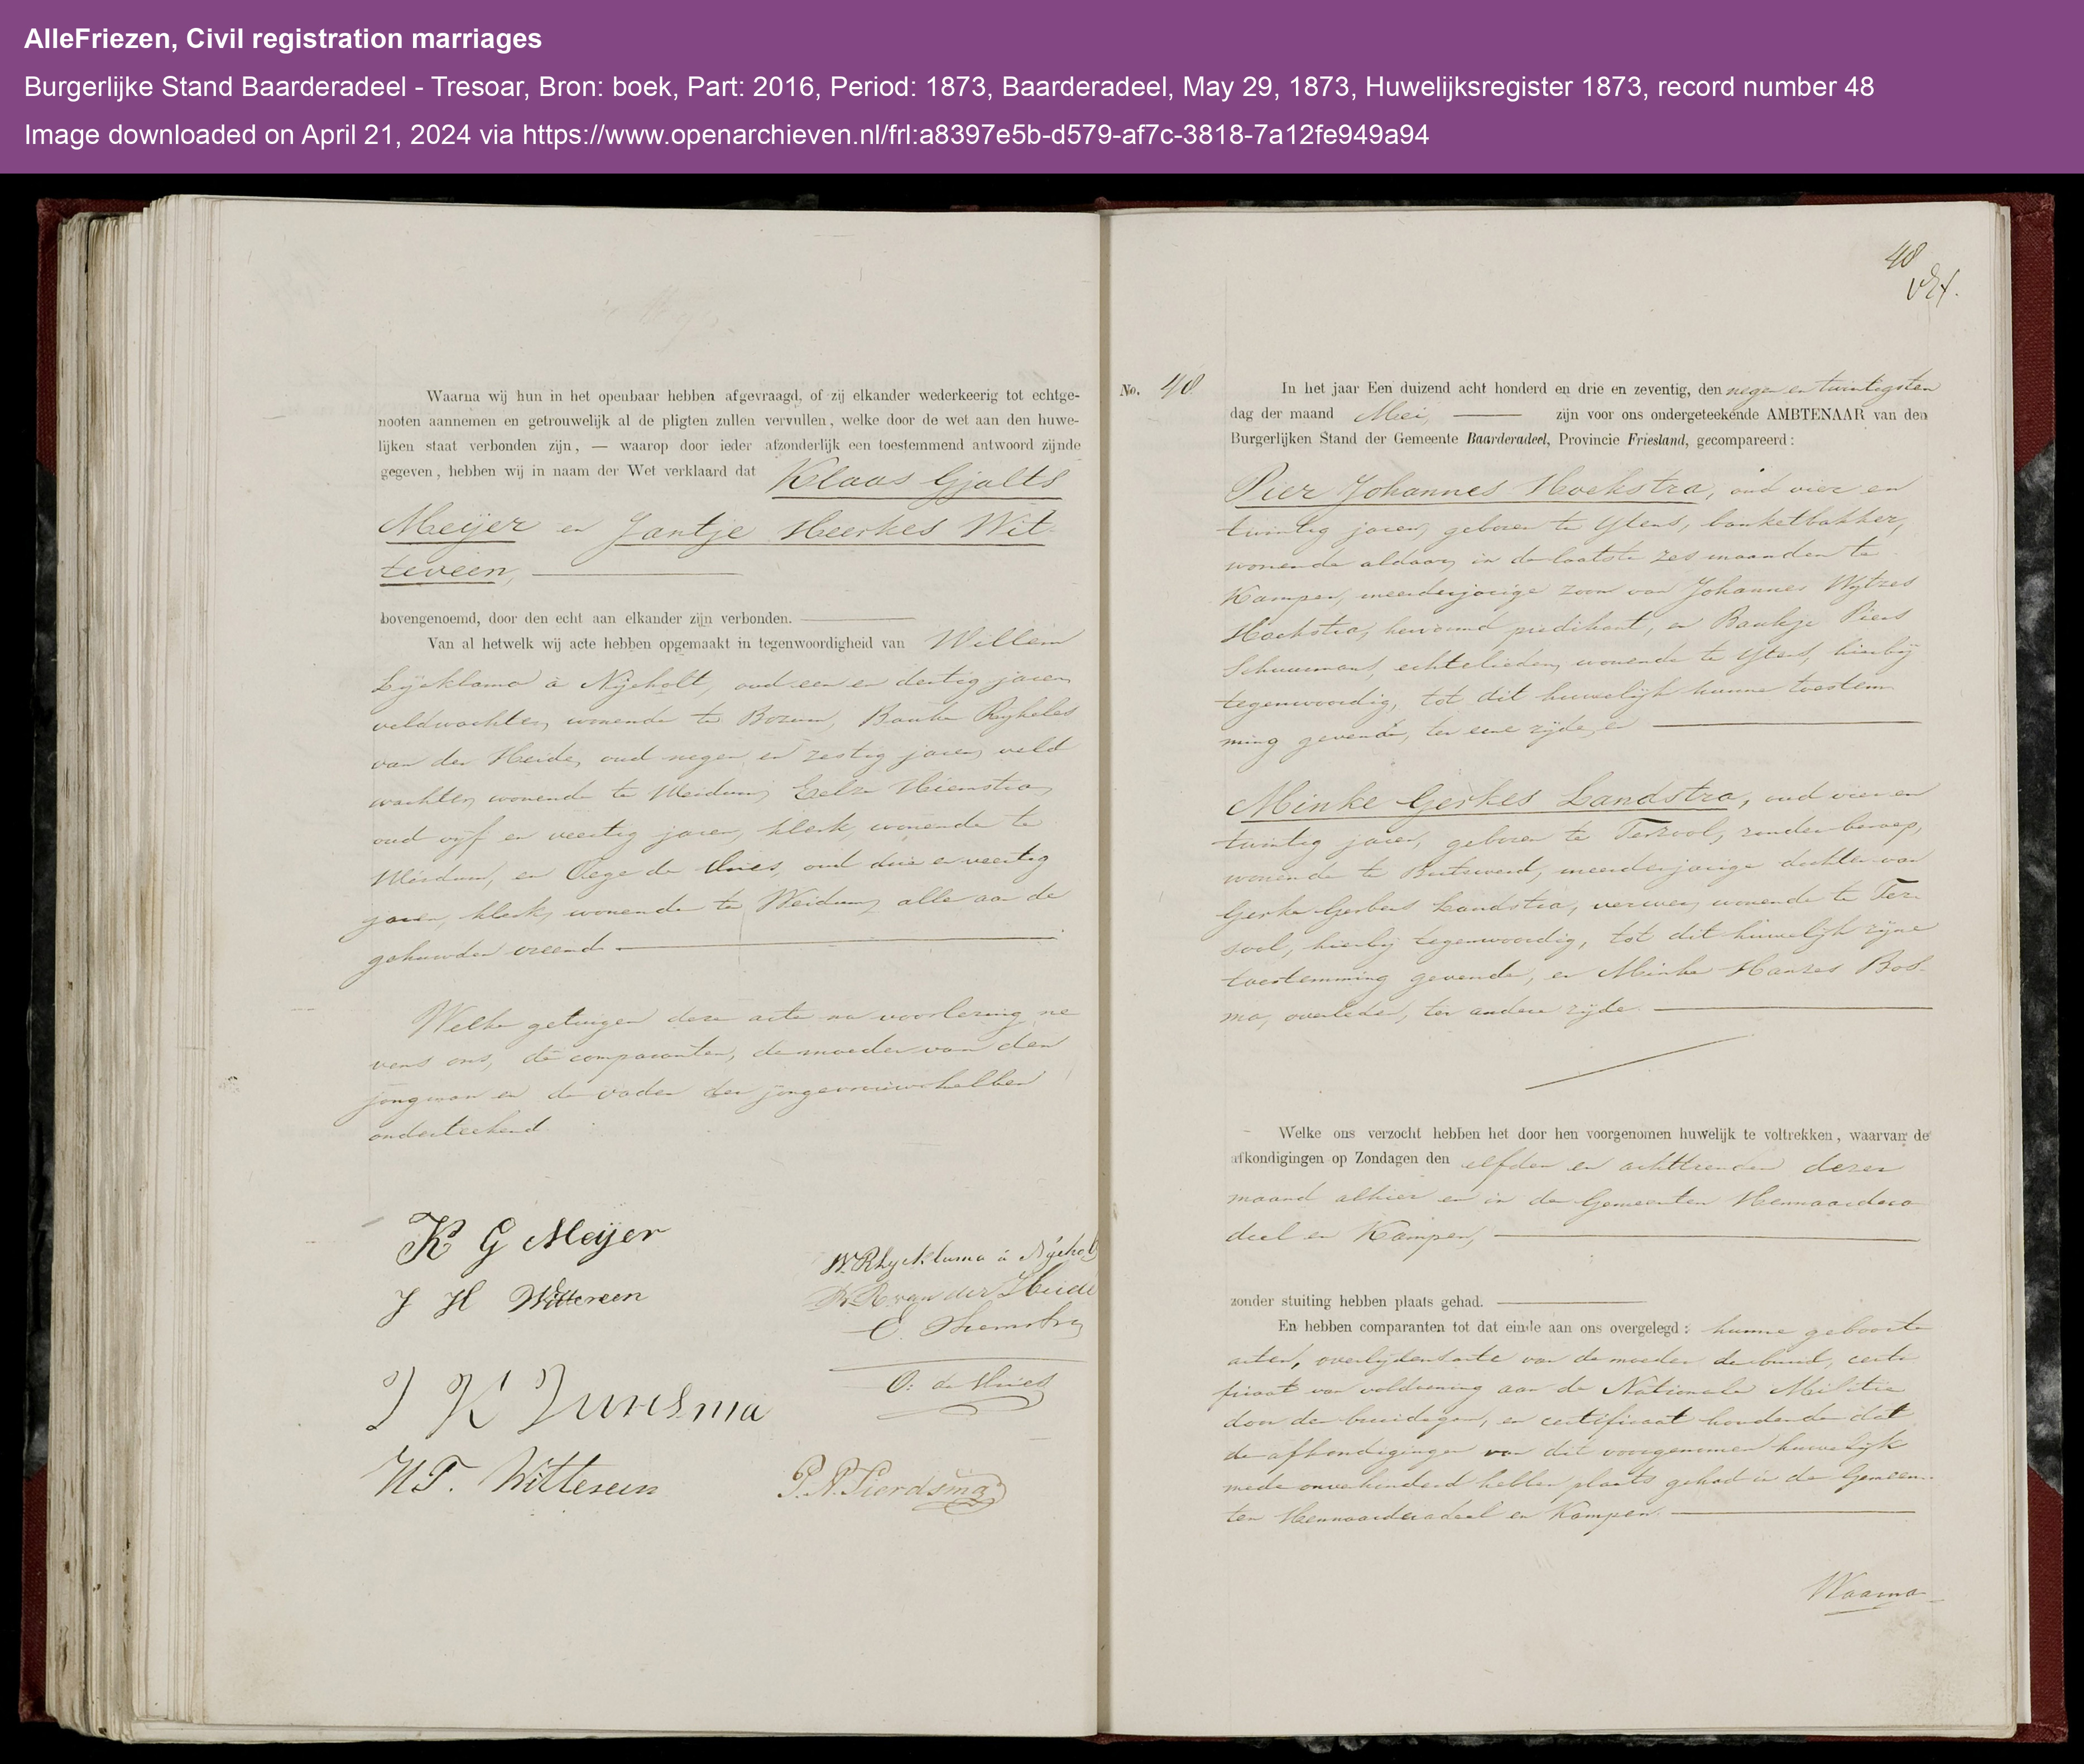 AlleFriezen, Civil registration marriages
Burgerlijke Stand Baarderadeel - Tresoar, Bron: boek, Part: 2016, Period: 1873, Baarderadeel, May 29, 1873, Huwelijksregister 1873, record number 48
Image downloaded on April 21, 2024 via https://www.openarchieven.nl/frl:a8397e5b-d579-af7c-3818-7a12fe949a94
Waarna wij hun in het openbaar hebben afgevraagd, of zij elkander wederkeerig tot echtge-
nooten aannemen en getrouwelijk al de pligten zullen vervullen, welke door de wet aan den huwe-
lijken staat verbonden zijn, — waarop door ieder afzonderlijk een toestemmend antwoord zijnde
gegeven, hebben wij in naam der Wet verklaard dat Klaas Gjalts
Meijer en Jantje Heerkes Wit-
teveen,
bovengenoemd, door den echt aan elkander zijn verbonden.
Van al hetwelk wij acte hebben opgemaakt in tegenwoordigheid van Willem
Lycklama à Nijeholt, oud een en dertig jaren,
veldwachter, wonende te Bozum, Bauke Rijkeles
van der Heide, oud negen en zestig jaren, veld
wachter, wonende te Weidum, Eelze Hiemstra,
oud vijf en veertig jaren, klerk, wonende te
Weidum, en Oege de Vries, oud drie en veertig
jaren, klerk, wonende te Weidum, alle aan de
gehuwden vreemd.
Welke getuigen deze acte na voorlezing ne
vens ons, de comparanten, de moeder van den
jongman en de vader der jongevrouw hebben
onderteekend.
K G Meijer
J H Witteveen
W. R Lycklama à Nijeholt
B. R. van der Heide
E. Hiemstra
O. de Vries
J K Tunsma
H T. Witteveen
P. A. Pierdsma
48
No. 48.
In het jaar Een duizend acht honderd en drie en zeventig, den negen en twintigsten
dag der maand Mei, zijn voor ons ondergeteekende AMBTENAAR van den
Burgerlijken Stand der Gemeente Baarderadeel, Provincie Friesland, gecompareerd:
Pier Johannes Hoekstra, oud vier en
twintig jaren, geboren te Ytens, banketbakker,
wonende aldaar, in de laatste zes maanden te
Kampen, meerderjarige zoon van Johannes Wytzes
Hoekstra, hervormd predikant, en Baukje Piers
Schuurmans, echtelieden, wonende te Ytens, hierbij
tegenwoordig, tot dit huwelijk hunne toestem
ming gevende, ter eene zijde, en
Minke Gerkes Landstra, oud vier en
twintig jaren, geboren te Terzool, zonder beroep,
wonende te Britswerd, meerderjarige dochter van
Gerke Gerbens Landstra, verwer, wonende te Ter-
zool, hierbij tegenwoordig, tot dit huwelijk zijne
toestemming gevende, en Minke Hanzes Bos-
ma, overleden, ter andere zijde.
Welke ons verzocht hebben het door hen voorgenomen huwelijk te voltrekken, waarvan de
afkondigingen op Zondagen den elfden en achttienden dezer
maand alhier en in de Gemeenten Hennaardera
deel en Kampen,
zonder stuiting hebben plaats gehad.
En hebben comparanten tot dat einde aan ons overgelegd: hunne geboorte
acten, overlijdensacte van de moeder der bruid, certi
ficaat van voldoening aan de Nationale Militie
door den bruidegom, en certificaat houdende dat
de afkondigingen van dit voorgenomen huwelijk
mede onverhinderd hebben plaats gehad in de Gemeen-
ten Hennaarderadeel en Kampen.
Waarna